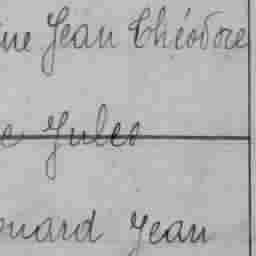 ine Jean Théodore
e Jules
ouard Jean